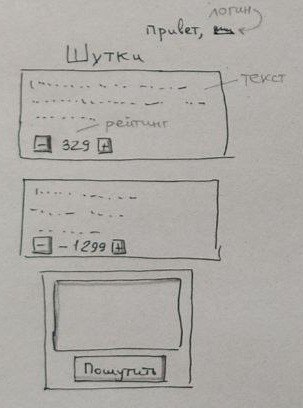 логин
привет,
Шутки
текст
рейтинг
- 329 +
- -1299 +
Пошутить